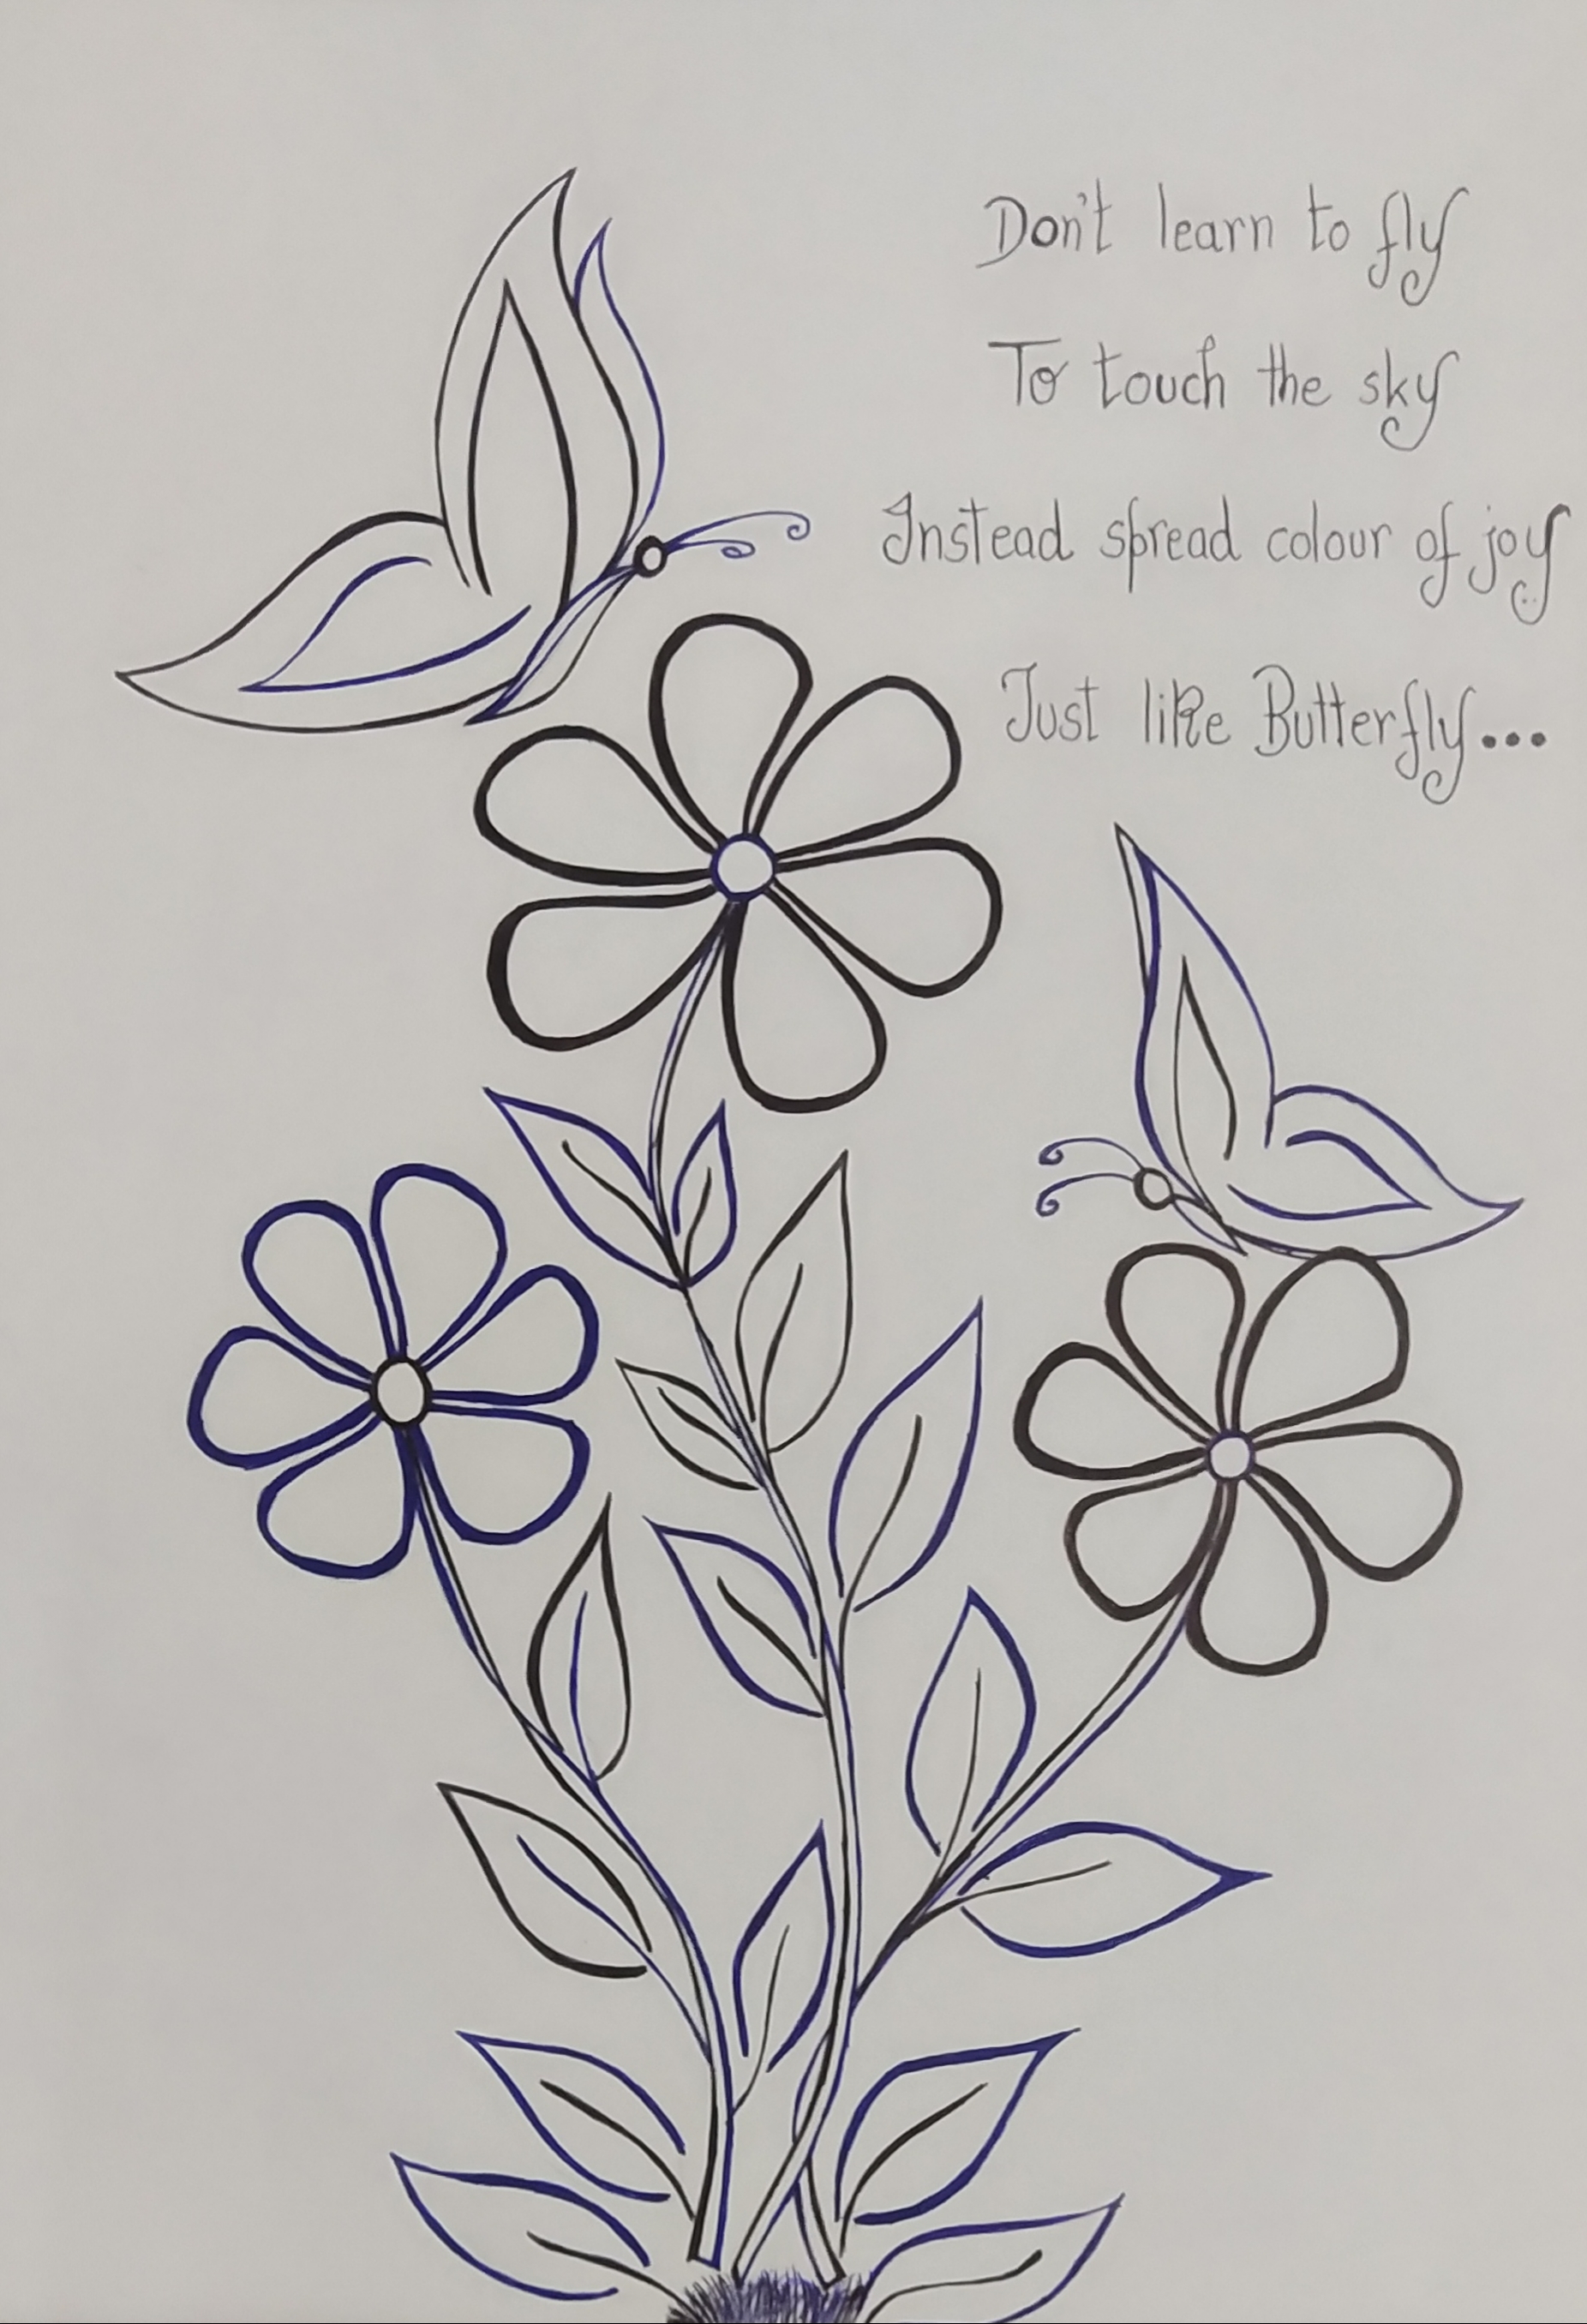 Don't learn to fly
To touch the sky
Instead spread colour of joy
Just like Butterfly...